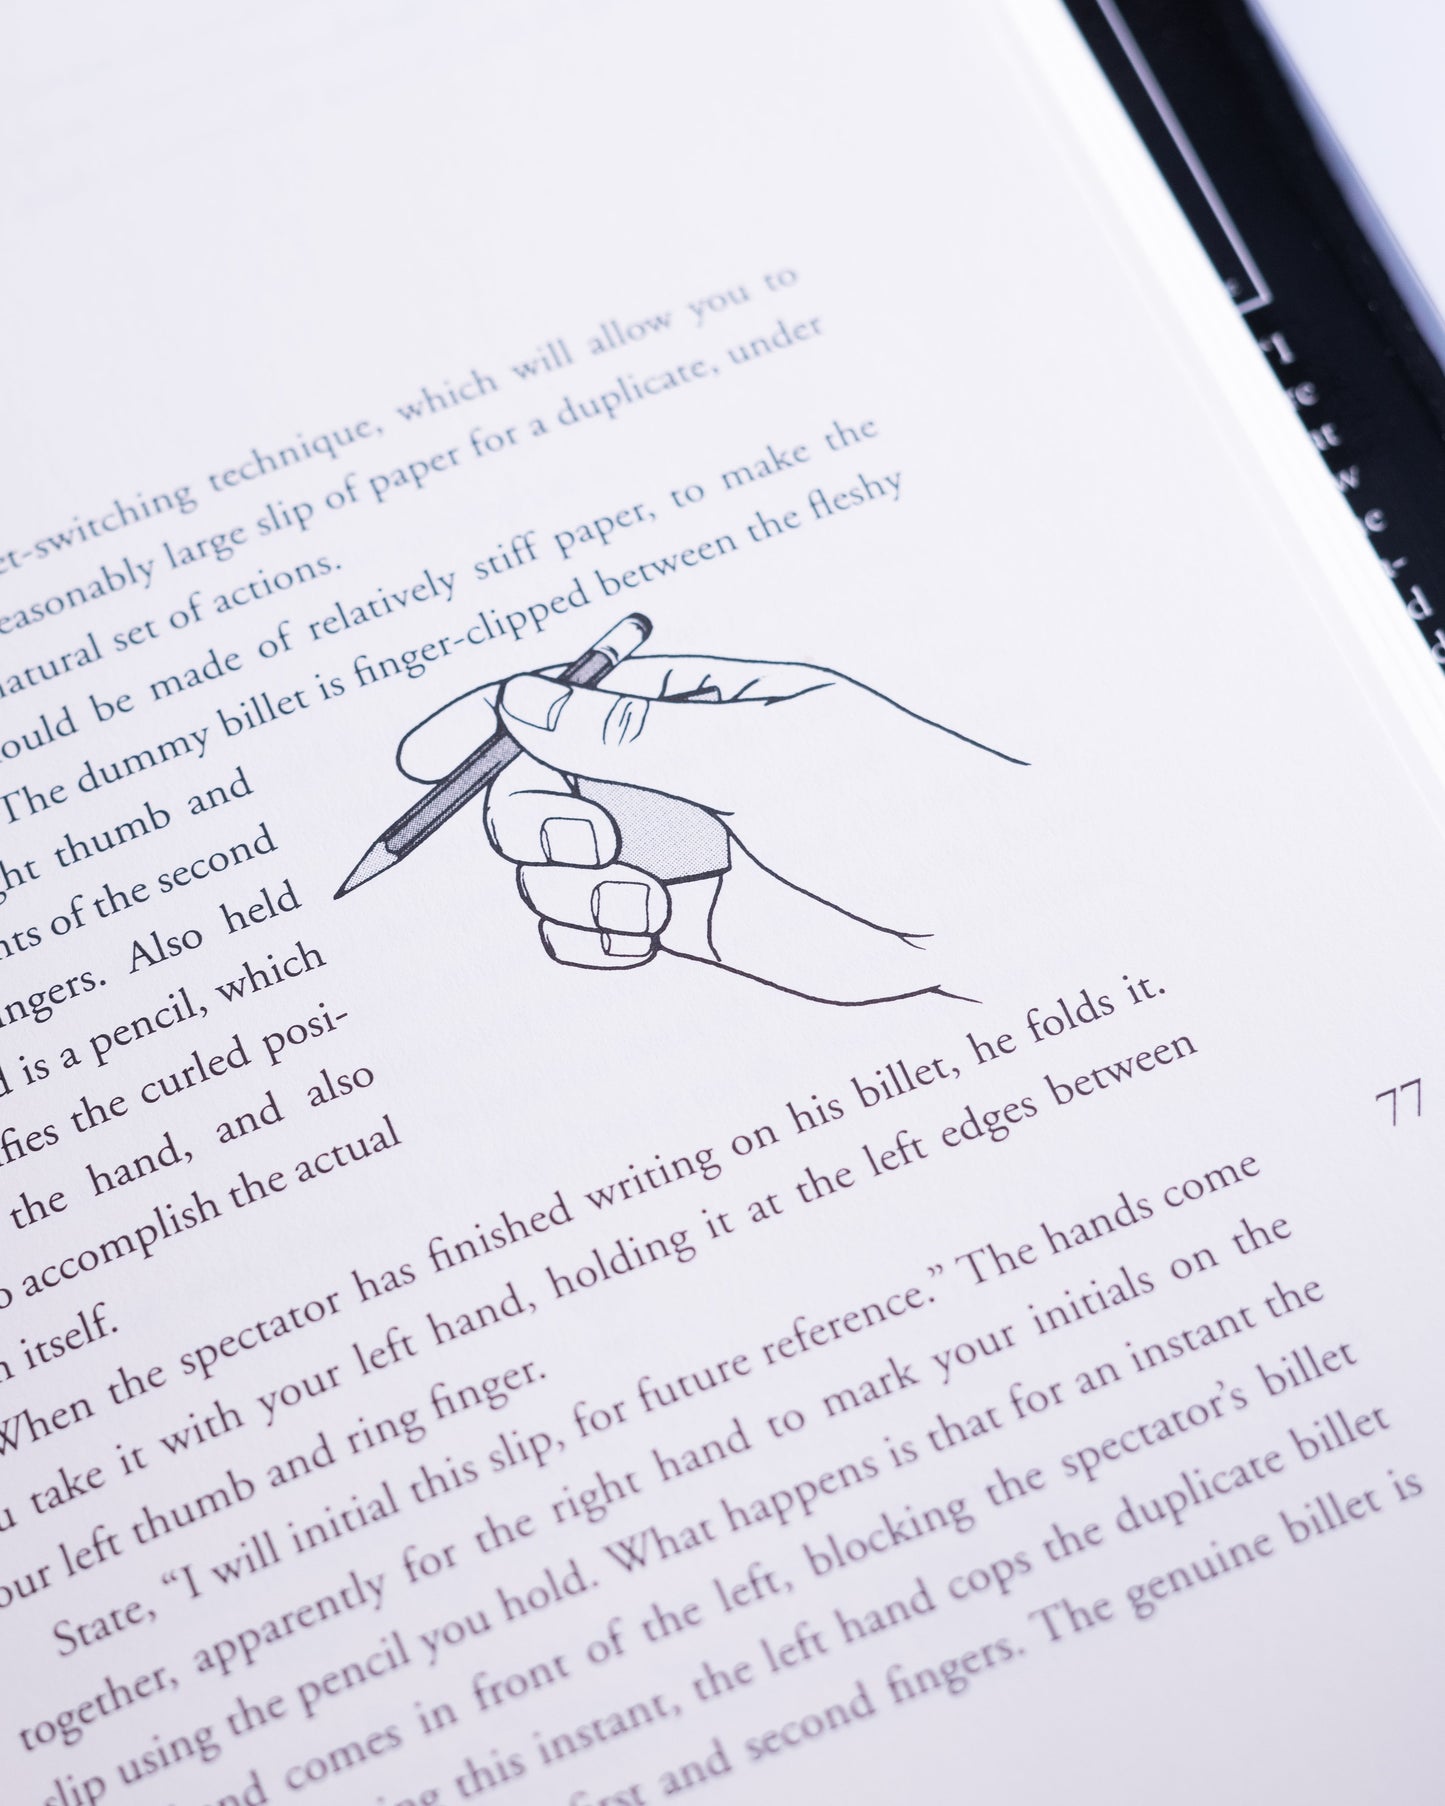 et-switching technique, which will allow you to
easonably large slip of paper for a duplicate, under
natural set of actions.
ould be made of relatively stiff paper, to make the
The dummy billet is finger-clipped between the fleshy
ght thumb and
nts of the second
ngers. Also held
d is a pencil, which
fies the curled posi-
the hand, and also
o accomplish the actual
n itself.
When the spectator has finished writing on his billet, he folds it.
u take it with your left hand, holding it at the left edges between
our left thumb and ring finger.
State, “I will initial this slip, for future reference.” The hands come
together, apparently for the right hand to mark your initials on the
slip using the pencil you hold. What happens is that for an instant the
nd comes in front of the left, blocking the spectator’s billet
ng this instant, the left hand cops the duplicate billet
first and second fingers. The genuine billet is
77